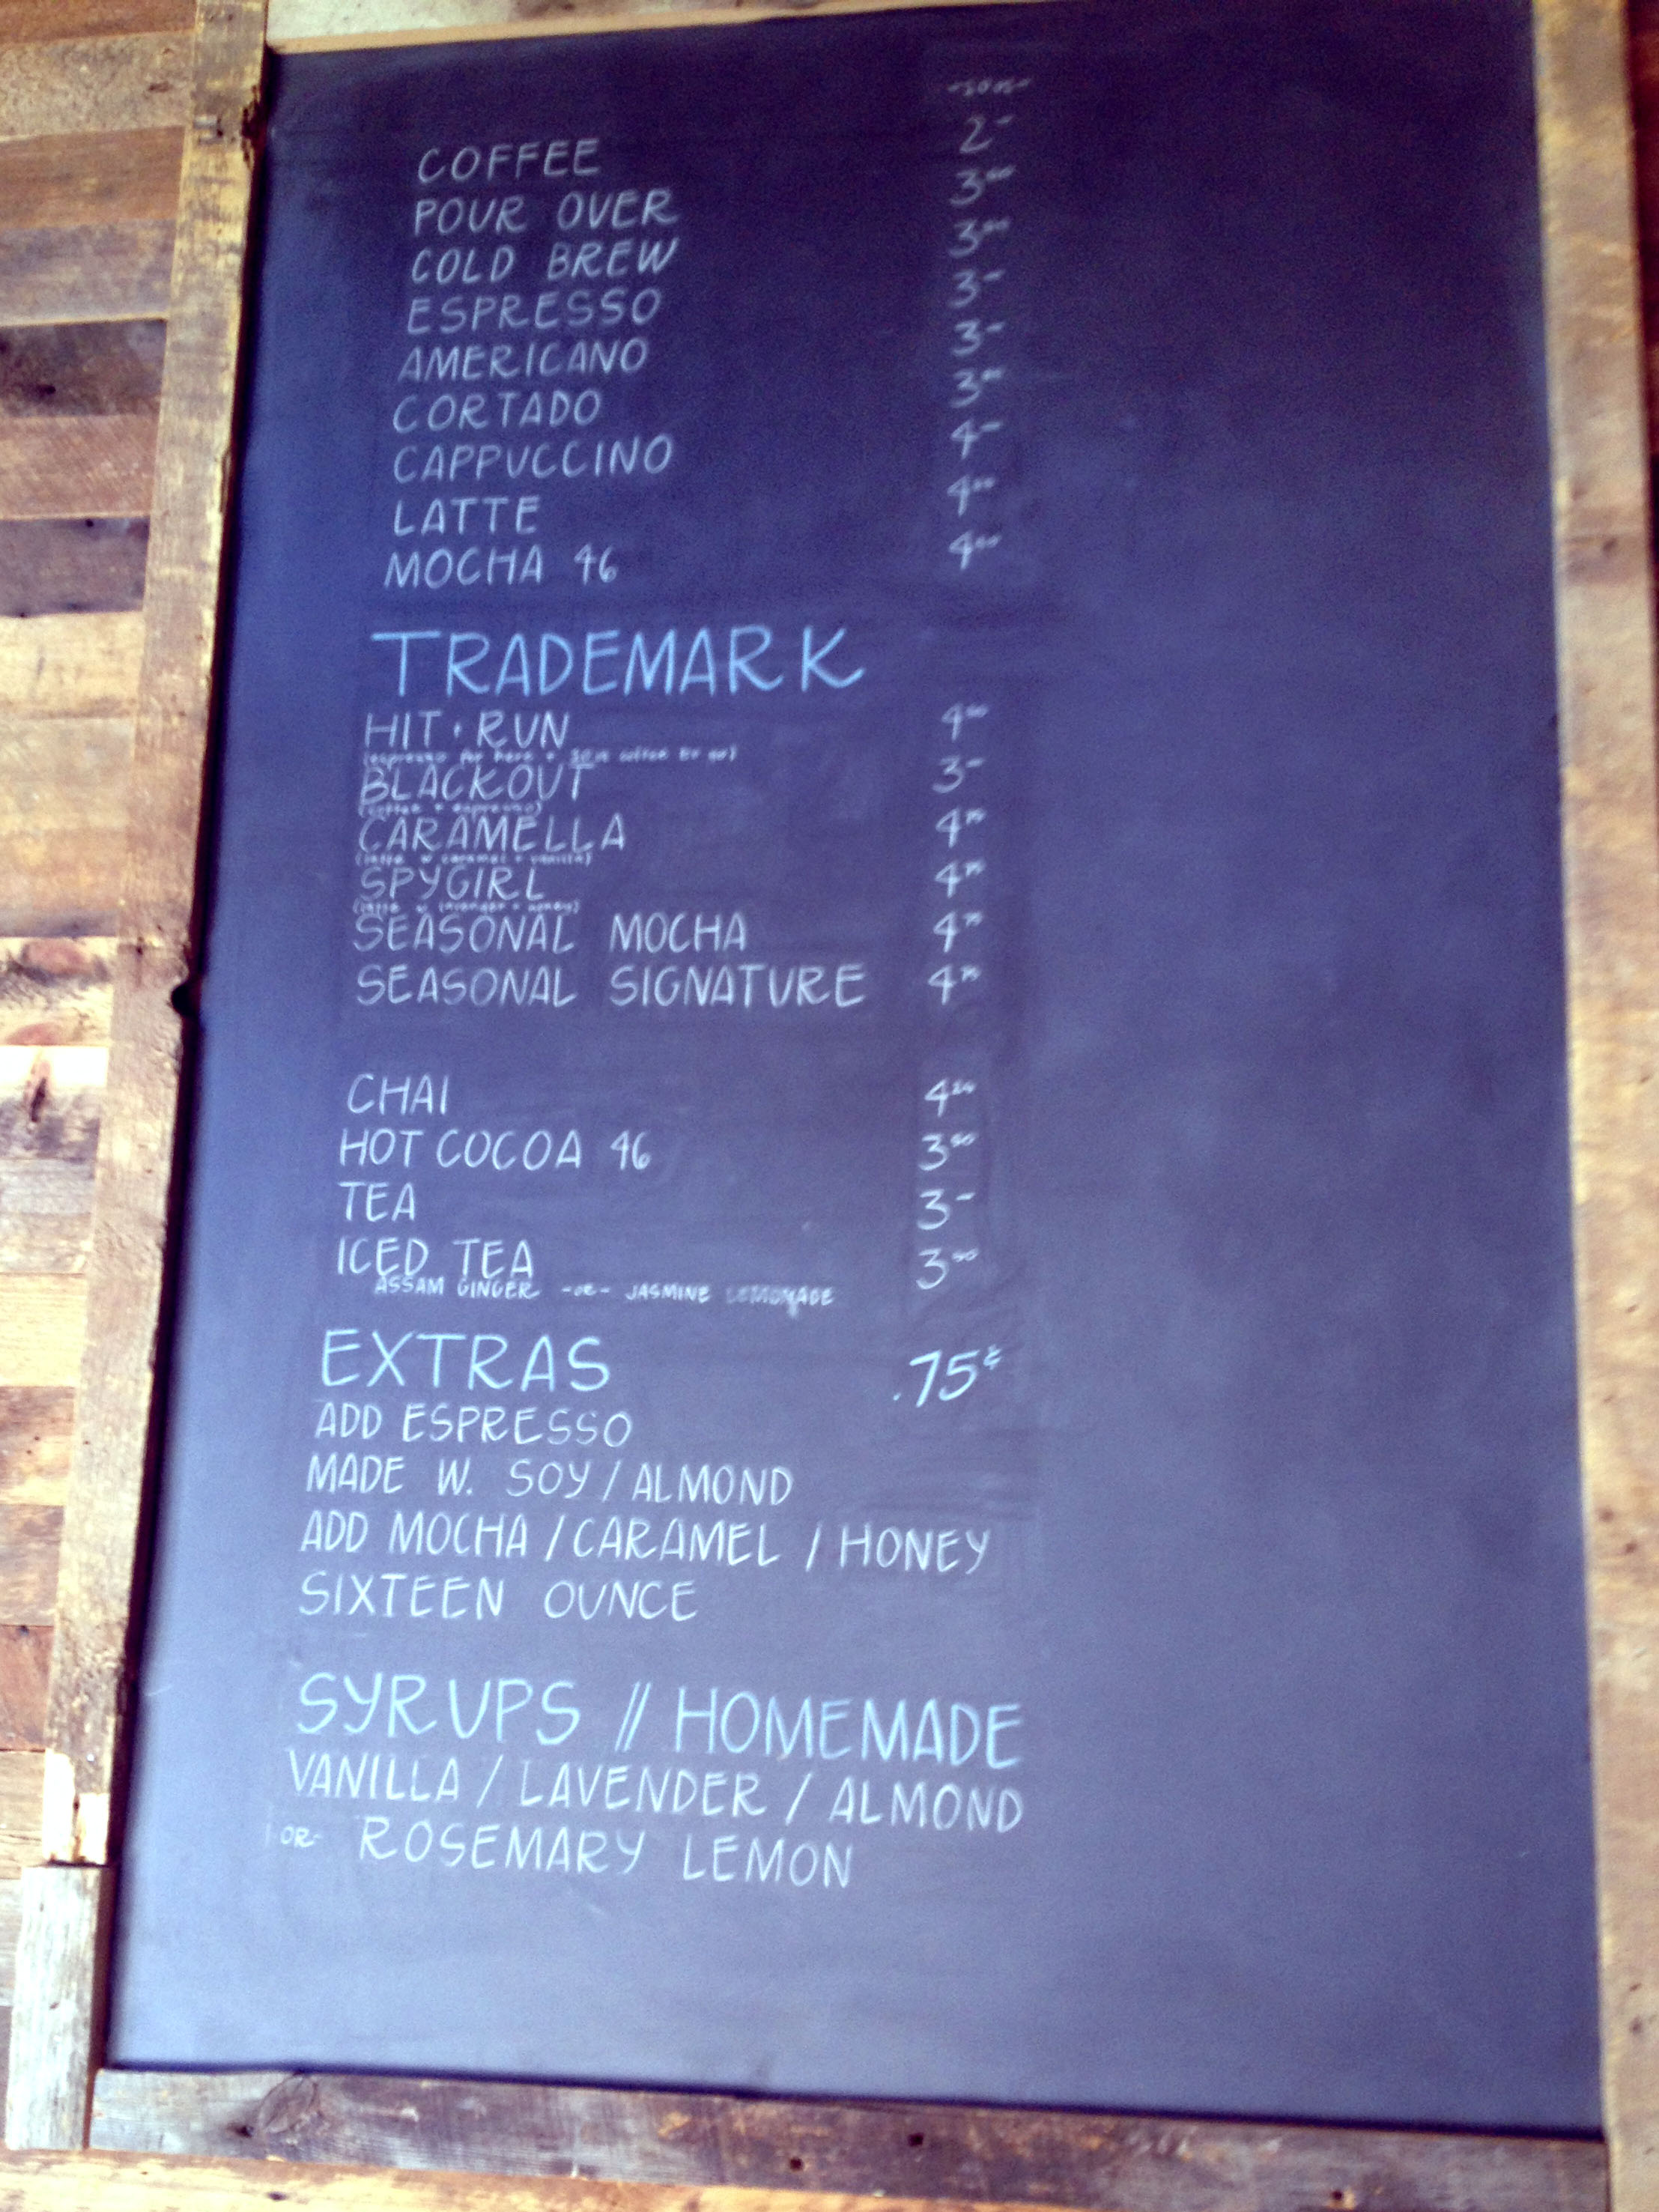 COFFEE 2-
POUR OVER 3
COLD BREW 3
ESPRESSO 3-
AMERICANO 3-
CORTADO 3
CAPPUCCINO 4-
LATTE 4
MOCHA 46 4
TRADEMARK
HIT + RUN 4
(espresso for here + 10 oz coffee to go)
BLACKOUT 3-
(coffee + espresso)
CARAMELLA 4
(latte w caramel + vanilla)
SPYGIRL 4
(latte w lavender + honey)
SEASONAL MOCHA 4
SEASONAL SIGNATURE 4
CHAI 4
HOT COCOA 46 3
TEA 3-
ICED TEA 3
ASSAM GINGER -OR- JASMINE LEMONADE
EXTRAS .75¢
ADD ESPRESSO
MADE W. SOY / ALMOND
ADD MOCHA / CARAMEL / HONEY
SIXTEEN OUNCE
SYRUPS // HOMEMADE
VANILLA / LAVENDER / ALMOND
OR- ROSEMARY LEMON